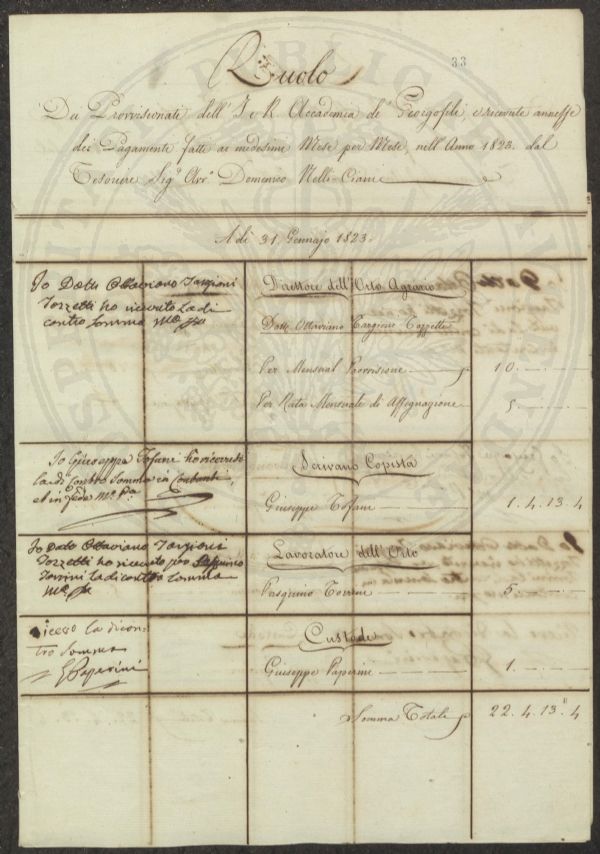 33
Ruolo
Dei Provvisionati dell' I e R Accademia de' Georgofili, e ricevute annesse
dei Pagamenti fatti ai medesimi Mese per Mese, nell' Anno 1823. dal
Tesoriere Sigr Domenico Nelli-Ciani
A dì 31. Gennajo 1823.
Io Dott Ottaviano Targioni
Tozzetti ho ricevuto la di
contro somma Mo Pa
Direttore dell' Orto Agrario
Dott. Ottaviano Targioni Tozzetti
Per Mensual Provvisione 10
Per Rata Mensuale di Assegnazione 5
Io Giuseppe Tofani ho ricevuto
la di contro somma in Contanti,
et in fede Mo Pa
Scrivano Copista
Giuseppe Tofani 1. 4. 13. 4
Io Dott Ottaviano Targioni
Tozzetti ho ricevuto per Pasquino
Torrini la di contro somma
Mo Pa
Lavoratore dell' Orto
Pasquino Torrini 5
ricevo la dicon
tro somma
G Paperini
Custode
Giuseppe Paperini 1.
Somma Totale 22. 4. 13. 4